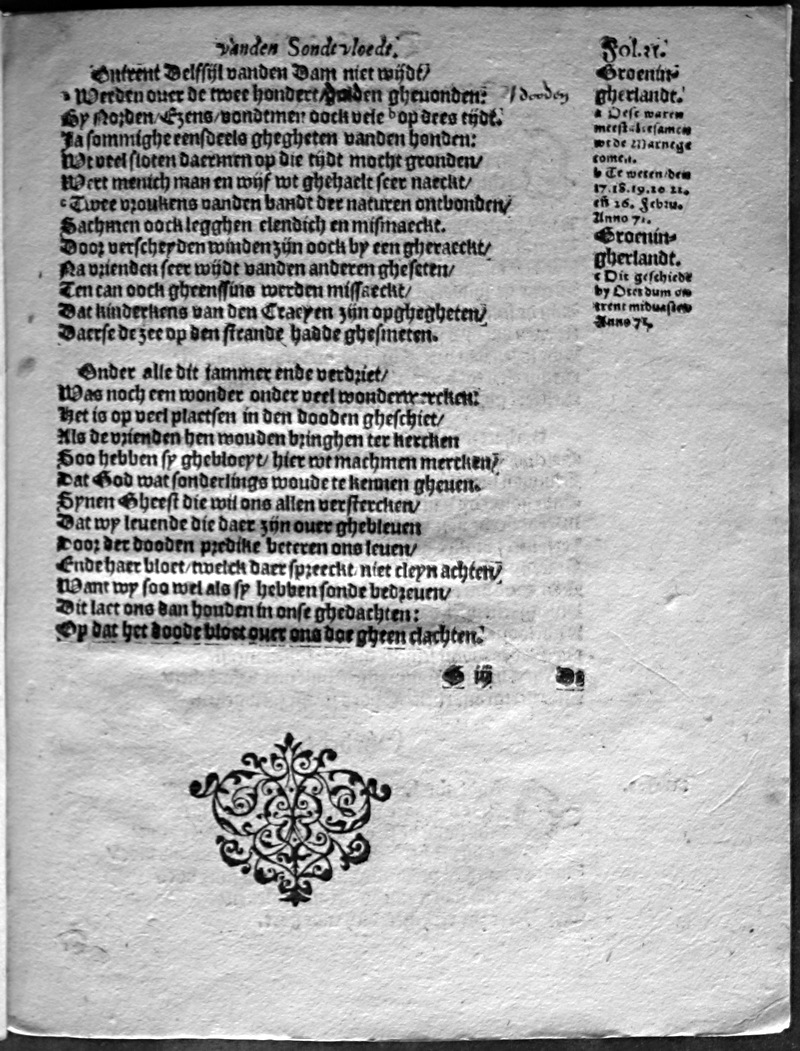 vanden Sondtvloedt.
Fol. 27.
Ontrent Delfsijl vanden Dam niet wijdt/
a Werden ouer de twee hondert/ gheuonden:
/ dooden
By Norden/Ezens/vondtmen oock vele b op dees tijdt.
Ja sommighe eensdeels ghegheten vanden honden:
Wt veel sloten daermen op die tijdt mocht gronden/
Wert menich man en wijf wt ghehaelt seer naeckt/
c Twee vroukens vanden bandt der naturen ontbonden/
Sachmen oock legghen elendich en mismaeckt.
Door verscheyden winden zijn oock by een gheraeckt/
Na vrienden seer wijdt vanden anderen gheseten/
Ten can oock gheenssins werden missaeckt/
Dat kinderkens van den Craeyen zijn opghegheten/
Daerse de zee op den strande hadde ghesmeten.
Onder alle dit iammer ende verdriet/
Was noch een wonder onder veel wonderwercken:
Het is op veel plaetsen in den dooden gheschiet/
Als de vrienden hen wouden bringhen ter kercken
Soo hebben sy ghebloeyt/ hier wt machmen mercken/
Dat God wat sonderlings woude te kennen gheuen.
Synen Gheest die wil ons allen verstercken/
Dat wy leuende die daer zijn ouer ghebleuen
Door der dooden predike beteren ons leuen/
Ende haer bloet/twelck daer spreeckt niet cleyn achten/
Want wy soo wel als sy hebben sonde bedreuen/
Dit laet ons dan houden in onse ghedachten:
Op dat het doode bloet ouer ons doe gheen clachten.
Groenin-
gherlandt.
a Dese waren
meest al tesamen
wt de Marnege
comen.
b Te weten/den
17.18.19.20 21.
eñ 26. Febru.
Anno 71.
Groenin-
gherlandt.
c Dit geschiede
by Oterdum on
trent midvasten
Anno 71.
G iij